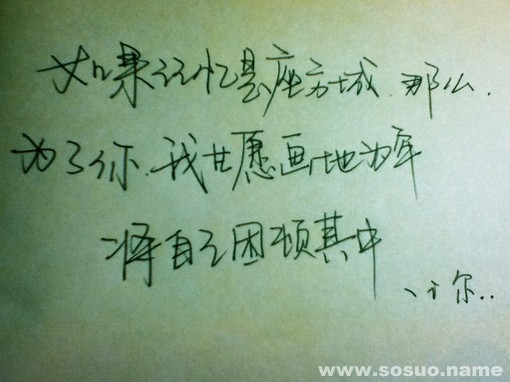 如果记忆是座方城.那么.
为了你.我甘愿画地为牢
将自己困顿其中
、个尔..
www.sosuo.name